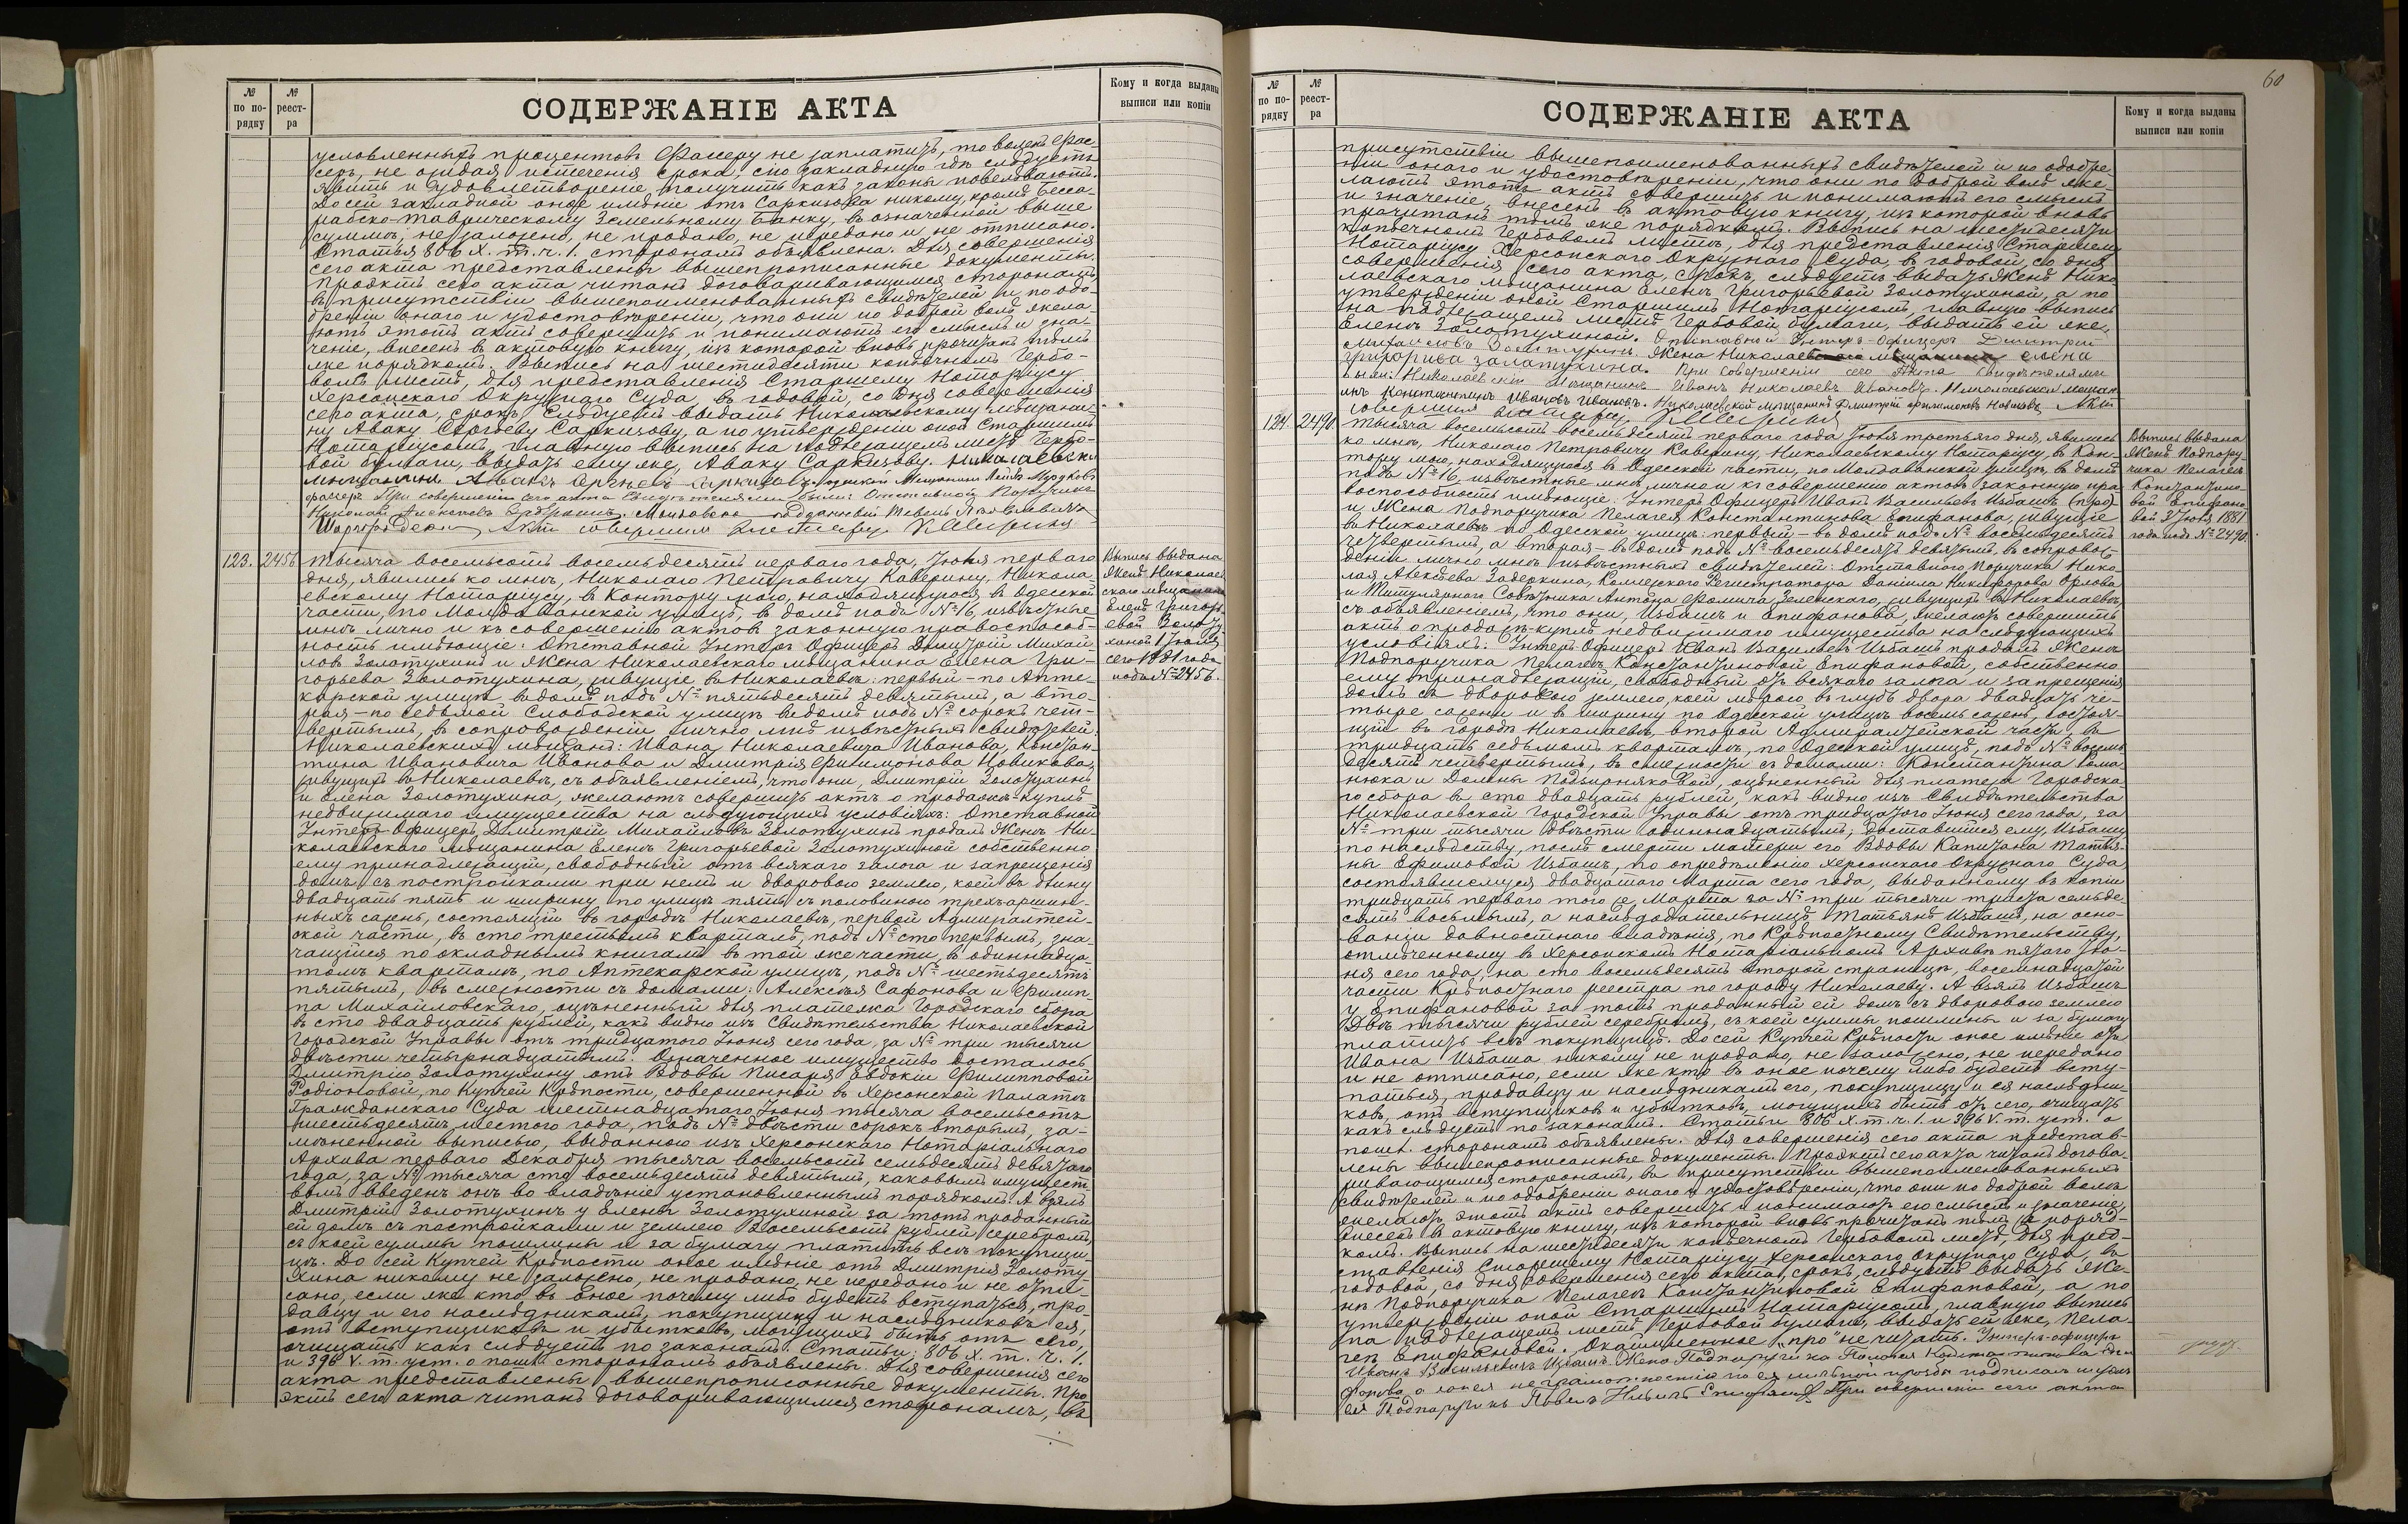 № по по-рядку
№ реест-ра
СОДЕРЖАНІЕ АКТА
Кому и когда выданы выписи или копіи
условленныхъ процентовъ Фасеру не заплатитъ, то воленъ Фас-
серъ, не ожидая истеченія срока, сію закладную гдѣ слѣдуетъ
явить и удовлетвореніе получить какъ законы повелѣваютъ.
До сей закладной оное имѣніе отъ Саркизова никому, кромѣ Бесса-
рабско-таврическому Земельному Банку, въ означенной выше
суммѣ, не заложено, не продано, не передано и не отписано.
Статья 806 X. т. ч. 1. сторонамъ объявлена. Для совершенія
сего акта представлены вышепрописанные документы.
Проэктъ сего акта читанъ договаривающимся сторонамъ,
въ присутствіи вышепоименованныхъ свидѣтелей и по одо-
бреніи онаго и удостовѣреніи, что они по доброй волѣ жела-
ютъ этотъ актъ совершить и понимаютъ его смыслъ и зна-
ченіе, внесенъ въ актовую книгу, изъ которой вновь прочитанъ тѣмъ
же порядкомъ. Выпись на шестидесяти копѣечномъ Гербо-
вомъ листѣ, для представленія Старшему Нотаріусу
Херсонскаго Окружнаго Суда, въ годовой, со дня совершенія
сего акта, срокъ, слѣдуетъ выдать Николаевскому мѣщани-
ну Аваку Сергѣеву Саркизову, а по утвержденіи оной Старшимъ
Нотаріусомъ, главную выпись на подлежащемъ листѣ Гербо-
вой бумаги, выдать ему же, Аваку Саркизову. Николаевскій
мѣщанинъ Авакъ Мещанинъ
Фассеръ При совершеніи сего акта Свидѣтелями были: Отставной Поручикъ
Николай Алексѣевъ Задеркинъ.
Актъ совершилъ Нотаріусъ Каверинъ
123. 2456
Тысяча восемьсотъ восемьдесятъ перваго года, Іюля перваго
дня, явились ко мнѣ, Николаю Петровичу Каверину, Никола-
евскому Нотаріусу, въ Контору мою, находящуюся въ Одесской
части, по Молдаванской улицѣ, въ домѣ подъ №16, извѣстные
мнѣ лично и къ совершенію актовъ законную правоспособ-
ность имѣющіе: Отставной Унтеръ Офицеръ Дмитрій Михай-
ловъ Золотухинъ и Жена Николаевскаго мѣщанина Елена Гри-
горьева Золотухина, живущіе въ Николаевѣ: первый - по Апте-
карской улицѣ въ домѣ подъ № пятьдесятъ девятымъ, а вто-
рая - по седьмой Слободской улицѣ въ домѣ подъ № сорокъ чет-
вертымъ, въ сопровожденіи лично мнѣ извѣстныхъ свидѣтелей:
Николаевскихъ мѣщанъ: Ивана Николаевича Иванова, Констан-
тина Ивановича Иванова и Дмитрія Филимонова Новикова,
живущихъ въ Николаевѣ, съ объявленіемъ, что они, Дмитрій Золотухинъ
и Елена Золотухина, желаютъ совершить актъ о продажѣ-куплѣ
недвижимаго имущества на слѣдующихъ условіяхъ: Отставной
Унтеръ-Офицеръ Дмитрій Михайловъ Золотухинъ продалъ Женѣ Ни-
колаевскаго мѣщанина Еленѣ Григорьевой Золотухиной собственно
ему принадлежащій, свободный отъ всякаго залога и запрещенія
домъ съ постройками при немъ и дворовою землею, коей въ длину
двадцать пять и ширину по улицѣ пять съ половиною трехъаршин-
ныхъ сажень, состоящій въ городѣ Николаевѣ, первой Адмиралтей-
ской части, въ сто третьемъ кварталѣ, подъ № сто первымъ, зна-
чащійся по окладнымъ книгамъ въ той же части, въ одиннадца-
томъ кварталѣ, по Аптекарской улицѣ, подъ № шестьдесятъ
пятымъ, въ смежности съ домами: Алексѣя Сафонова и Филип-
па Михайловскаго, оцѣненный для платежа Городскаго сбора
въ сто двадцать рублей, какъ видно изъ Свидѣтельства Николаевской
Городской Управы отъ тридцатаго Іюня сего года, за № три тысячи
двѣсти четырнадцатымъ. Означенное имущество досталось
Дмитрію Золотухину отъ Вдовы Писаря Евдокіи Филипповой
Родіоновой, по Купчей Крѣпости, совершенной въ Херсонской Палатѣ
Гражданскаго Суда шестнадцатаго Іюня тысяча восемьсотъ
шестьдесятъ шестого года, подъ № двѣсти сорокъ вторымъ, за-
мѣненной выписью, выданною изъ Херсонскаго Нотаріальнаго
Архива перваго Декабря тысяча восемьсотъ семьдесятъ девятаго
года, за № тысяча сто восемьдесятъ девятымъ, каковымъ имущест-
вомъ введенъ онъ во владѣніе установленнымъ порядкомъ. А взялъ
Дмитрій Золотухинъ у Елены Золотухиной за тотъ проданный
ей домъ съ постройками и землею Восемьсотъ рублей серебромъ,
съ коей суммы пошлины и за бумагу платить всѣ покупщи-
цѣ. До сей Купчей Крѣпости оное имѣніе отъ Дмитрія Золоту-
хина никому не заложено, не продано, не передано и не отпи-
сано, если же кто въ оное почему либо будетъ вступаться, про-
давцу и его наслѣдникамъ, покупщицу и наслѣдниковъ ея,
отъ вступщиковъ и убытковъ, могущихъ быть отъ сего,
очищать какъ слѣдуетъ по законамъ. Статьи: 806 X. т. ч. 1.
и 396 V. т. уст. о пошл. сторонамъ объявлены. Для совершенія сего
акта представлены вышепрописанные документы. Про-
эктъ сего акта читанъ договаривающимся сторонамъ, въ
Выпись выдана
Женѣ Николаев-
скаго мѣщанина
Еленѣ Григорь-
евой Золоту-
хиной 1 Іюля
сего 1881 года
подъ №2456.
60
№ по по-рядку
№ реест-ра
СОДЕРЖАНІЕ АКТА
Кому и когда выданы выписи или копіи
присутствіи вышепоименованныхъ свидѣтелей и по одобре-
ніи онаго и удостовѣреніи, что они по доброй волѣ же-
лаютъ этотъ актъ совершить и понимаютъ его смыслъ
и значеніе, внесенъ въ актовую книгу, изъ которой вновь
прочитанъ тѣмъ же порядкомъ. Выпись на шестидесяти
копѣечномъ Гербовомъ листѣ, для представленія Старшему
Нотаріусу Херсонскаго Окружнаго Суда, въ годовой, со дня
совершенія сего акта, срокъ, слѣдуетъ выдать Женѣ Нико-
лаевскаго мѣщанина Еленѣ Григорьевой Золотухиной, а по
утвержденіи оной Старшимъ Нотаріусомъ, главную выпись
на подлежащемъ листѣ Гербовой бумаги, выдать ей же,
Еленѣ Золотухиной. Отставной Унтеръ-Офицеръ Дмитрій
Михайловъ Золотухинъ. Жена Николаевскаго мѣщанина Елена
Григорива залатухина. При Совершеніи сего Акта Свидѣтелями
были: Николаевскій Мѣщанинъ Иванъ Николаевъ Ивановъ. Николаевскій мѣщан-
инъ Константинъ Ивановъ Ивановъ. Николаевской мѣщанинъ Дмитрій Филимоновъ Новиковъ Актъ
совершилъ Нотаріусъ Каверинъ
124. 2490
Тысяча восемьсотъ восемьдесятъ перваго года Іюля третьяго дня, явились
ко мнѣ, Николаю Петровичу Каверину, Николаевскому Нотаріусу, въ Кон-
тору мою, находящуюся въ Одесской части, по Молдаванской улицѣ, въ домѣ
подъ №16, извѣстные мнѣ лично и къ совершенію актовъ законную пра-
воспособность имѣющіе: Унтеръ Офицеръ Иванъ Васильевъ Избашъ (про)
и Жена Подпоручика Пелагея Константинова Епифанова, живущіе
въ Николаевѣ по Одесской улицѣ: первый - въ домѣ подъ № восемьдесятъ
четвертымъ, а вторая - въ домѣ подъ № восемьдесятъ девятымъ, въ сопровож-
деніи лично мнѣ извѣстныхъ свидѣтелей: Отставного Поручика Нико-
лая Алексѣева Задеркина, Коллежскаго Регистратора Даніила Никифорова Орлова
и Титулярнаго Совѣтника Антона Фомича Зеленскаго, живущихъ въ Николаевѣ,
съ объявленіемъ, что они, Избашъ и Епифанова, желаютъ совершить
актъ о продажѣ-куплѣ недвижимаго имущества на слѣдующихъ
условіяхъ: Унтеръ Офицеръ Иванъ Васильевъ Избашъ продалъ Женѣ
Подпоручика Пелагеѣ Константиновой Епифановой, собственно
ему принадлежащій, свободный отъ всякаго залога и запрещенія
домъ съ дворовою землею, коей мѣрою въ глубь двора двадцать че-
тыре сажени и въ ширину по Одесской улицѣ восемь сажень, состоя-
щій въ городѣ Николаевѣ, второй Адмиралтейской части, въ
тридцать седьмомъ кварталѣ, по Одесской улицѣ, подъ № восемь-
десятъ четвертымъ, въ смежности съ домами: Константина Рома-
нюка и Домны Подгорняковой, оцѣненный для платежа Городска-
го сбора въ сто двадцать рублей, какъ видно изъ Свидѣтельства
Николаевской Городской Управы отъ тридцатаго Іюня сего года, за
№ три тысячи двѣсти одиннадцатымъ, доставшійся ему, Избашу
по наслѣдству, послѣ смерти матери его Вдовы Капитана Татья-
ны Ефимовой Избашъ, по опредѣленію Херсонскаго Окружнаго Суда
состоявшемуся двадцатаго Марта сего года, выданному въ копіи
тридцать перваго того же Марта за № три тысячи триста семьде-
сятъ восьмымъ, а наслѣдодательницѣ Татьянѣ Избашъ, на осно-
ваніи давностнаго владѣнія, по Крѣпостному Свидѣтельству,
отмѣченному въ Херсонскомъ Нотаріальномъ Архивѣ пятаго Ію-
ня сего года, на сто восемьдесятъ второй страницѣ, восемнадцатой
части Крѣпостнаго реестра по городу Николаеву. А взялъ Избашъ
у Епифановой за тотъ проданный ей домъ съ дворовою землею
Двѣ тысячи рублей серебромъ, съ коей суммы пошлины и за бумагу
платить всѣ покупщицѣ. До сей Купчей Крѣпости оное имѣніе отъ
Ивана Избаша никому не продано, не заложено, не передано
и не отписано, если же кто въ оное почему либо будетъ всту-
паться, продавцу и наслѣдникамъ его, покупщицу и ея наслѣдни-
ковъ, отъ вступщиковъ и убытковъ, могущихъ быть отъ сего, очищать
какъ слѣдуетъ по законамъ. Статьи 806 X. т. ч. 1. и 396 V. т. уст. о
пошл. сторонамъ объявлены. Для совершенія сего акта представ-
лены вышепрописанные документы. Проэктъ сего акта читанъ догова-
ривающимся сторонамъ, въ присутствіи вышепоименованныхъ
свидѣтелей и по одобреніи онаго и удостовѣреніи, что они по доброй волѣ
желаютъ этотъ актъ совершить и понимаютъ его смыслъ и значеніе,
внесенъ въ актовую книгу, изъ которой вновь прочитанъ тѣмъ же поряд-
комъ. Выпись на шестидесяти копѣечномъ Гербовомъ листѣ, для пред-
ставленія Старшему Нотаріусу Херсонскаго Окружнаго Суда, въ
годовой, со дня совершенія сего акта, срокъ, слѣдуетъ выдать Же-
нѣ Подпоручика Пелагеѣ Константиновой Епифановой, а по
утвержденіи оной Старшимъ Нотаріусомъ, главную выпись
на подлежащемъ листѣ Гербовой бумаги, выдать ей же, Пела-
геѣ Епифановой. Окаймленное "про" не читать. Унтеръ-офицеръ
Иванъ Васильевичъ Избашъ. Жена Подпоручика Пелагея Константинова Епи-
фанова, а за нея неграмотностію по ея личной прозьбѣ подписалъ мужъ
ея Подпоручикъ Павелъ Епифановъ При совершеніи сего акта
Выпись выдана
Женѣ Подпору-
чика Пелагеѣ
Константино-
вой Епифано-
вой 3 Іюля 1881
года подъ №2490.